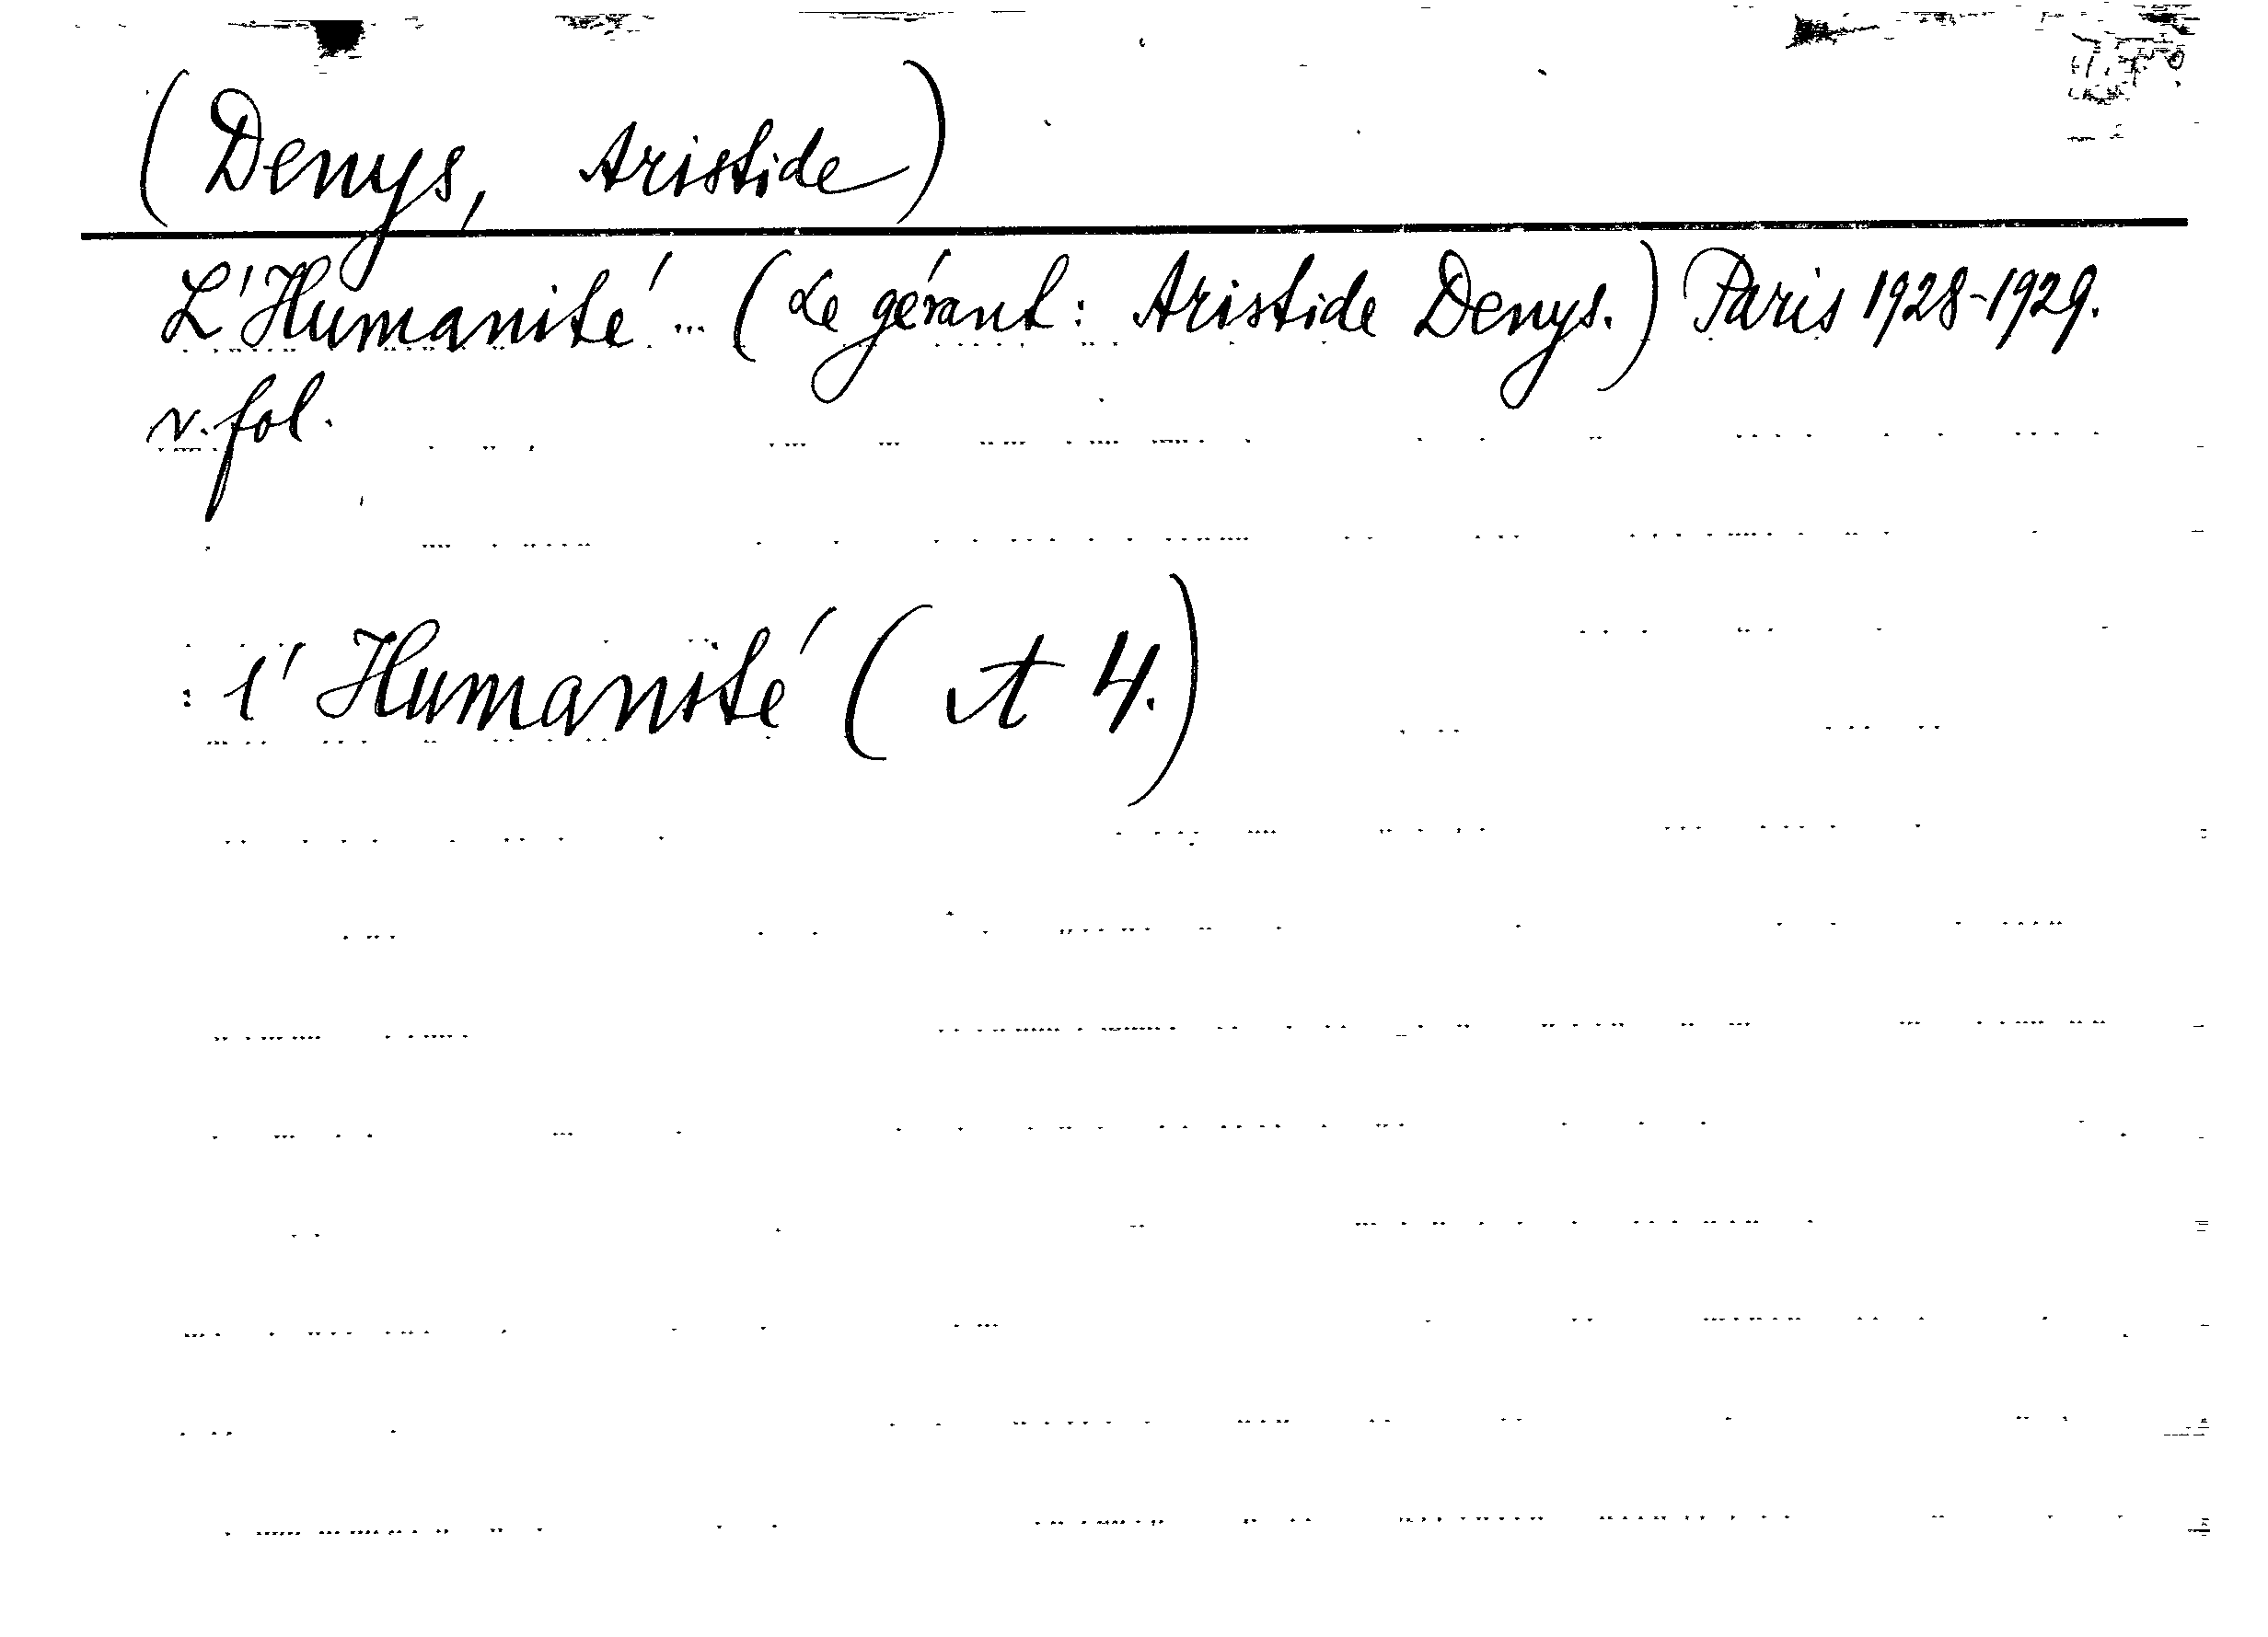 (Denys, Aristide)
L'Humanité ... (Le gérant: Aristide Denys.) Paris 1928-1929.
v. fol.
: l'Humanité (A 4.)